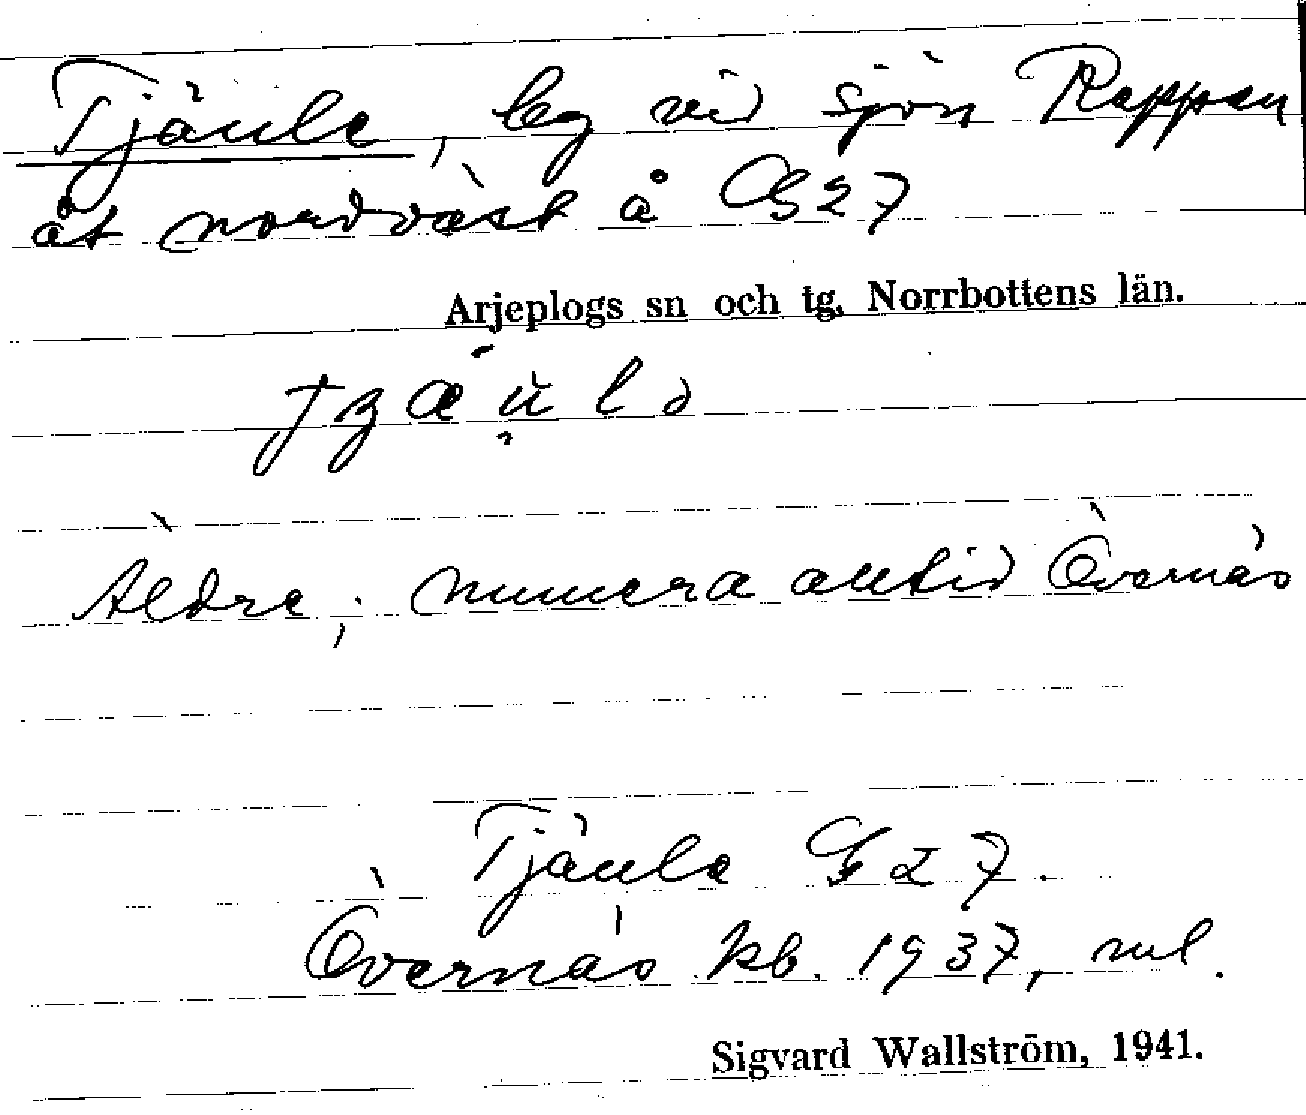 Tjäule, lg vid sjön Rappen
åt nordväst å G27
Arjeplogs sn och tg, Norrbottens län.
Äldre; numera alltid Övernäs
Tjäule G27.
Övernäs kb. 1937, ml.
Sigvard Wallström, 1941.